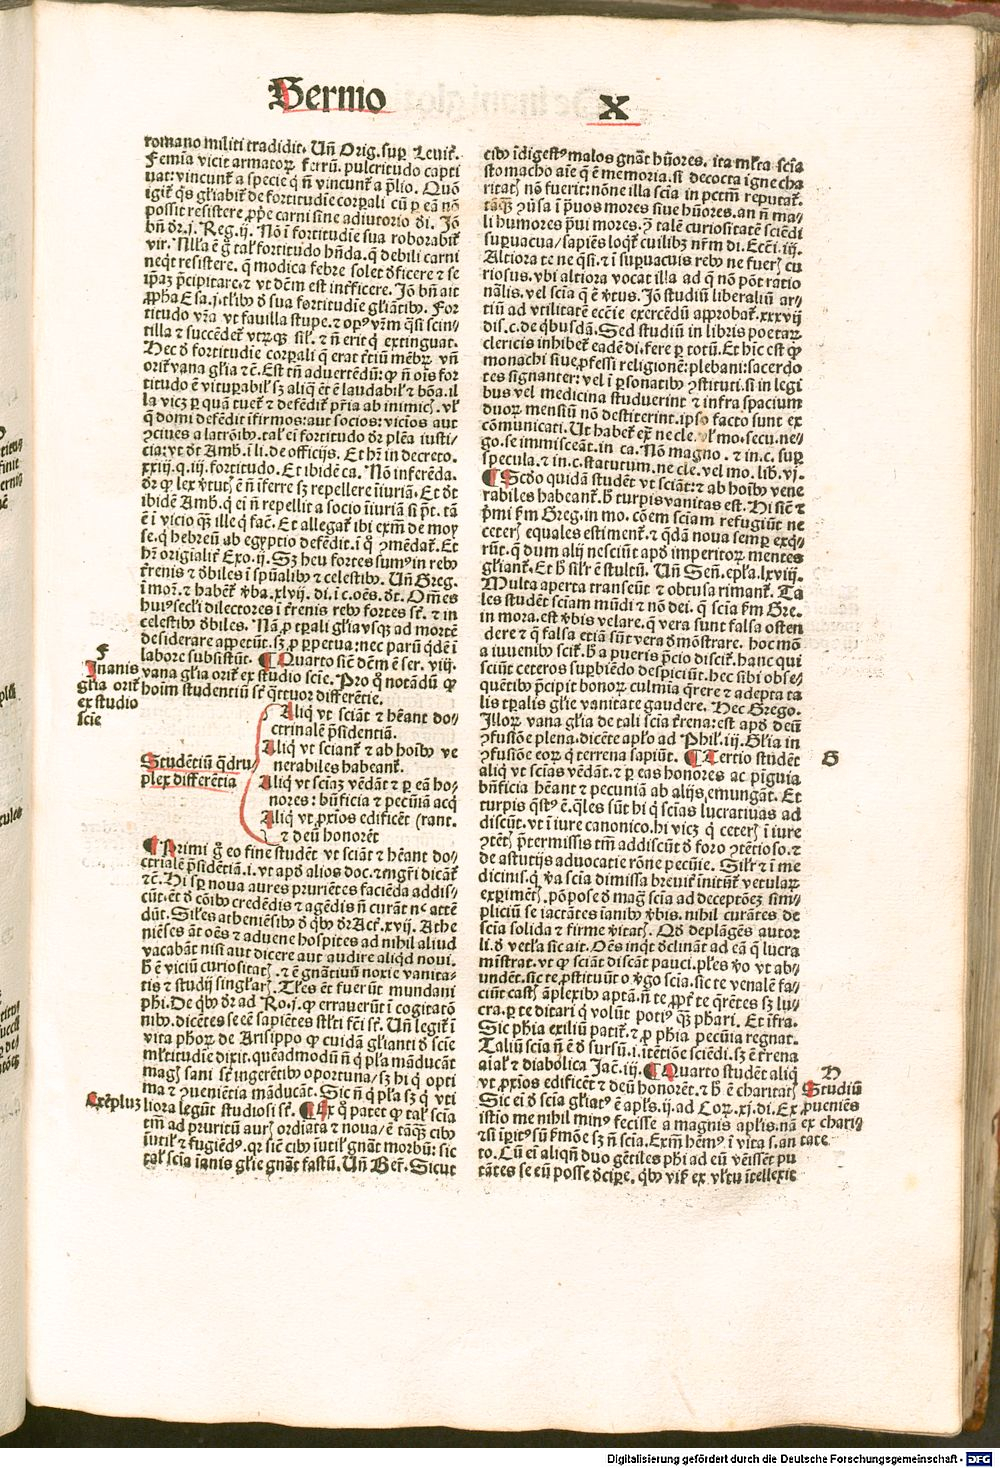 Sermo X
romano militi tradidit. Uñ Orig. sup Leuit.
Femĩa vicit armatoꝝ ferrũ. pulcritudo capti
uat: vincunt̃ a specie q̃ ñ vincunt̃ a p̃lio. Quõ
igit̃ q̃s gl̃iabit̃ de fortitudĩe corpali cũ ꝑ eã nõ
possit resistere ꝓp̃e carni sine adiutorio dĩ. Jõ
bñ dr̃.j. Reg.ij. Nõ ĩ fortitudĩe sua roborabit̃
vir. Nll̃a ẽ g̃ tal̃ fortitudo hñda. q̃ debili carni
neq̃t resistere. q̃ modica febre solet deficere ⁊ se
ip̃aꝫ p̃cipitare. ⁊ vt dẽm est inẽficere. Jõ bñ ait
ꝓp̃ha Esa.j. tl̃ibꝰ d̃ sua fortitudĩe gl̃iãtibꝰ. For
titudo vr̃a vt fauilla stupe. ⁊ opꝰ vr̃m q̃si scin⸗
tilla ⁊ succẽdet̃ vtrũqꝫ sil̃. ⁊ ñ erit q̃ extinguat.
Hec d̃ fortitudĩe corpali q̃ erat tẽtiũ mẽbꝝ vñ
orit̃ vana gl̃ia ⁊c̃. Est tñ aduertẽdũ: ꝙ ñ oĩs for
titudo ẽ vitupabil̃ sꝫ aliq̃ et̃ ẽ laudabil̃ ⁊ bõa. il
la vicꝫ ꝑ quã tuet̃ ⁊ defẽdit̃ pr̃ia ab inimicꝭ. vl̃
q̃ domi defẽdit ĩfirmos: aut socios: vicios aut
ꝯciues a latrõibꝰ. tal̃ ei fortitudo dr̃ plẽa iusti⸗
cia: vt d̃t Amb. ĩ li. de officijs. Et h̃ĩ in decreto.
xxiij. q.iij. fortitudo. Et ibidẽ ca. Nõ inferẽda.
d̃ꝫ q̃ lex v̾tutꝭ ẽ ñ ĩferre sꝫ repellere iniuriã. Et d̃t
ibidẽ Amb. q̃ ei ñ repellit a socio iniuriã si põt. tã
ẽ ĩ vicio q̃ꝫ ille q̃ fac̃. Et allegat̃ ibi exm̃ de moy
se. q̃ hebreũ ab egyptio defẽdit. ĩ q̃ ꝯmẽdat̃. Et
h̃r origialit̃ Exo.ij. Sꝫ heu fortes sumꝰ in rebꝰ
t̃renis ⁊ d̃biles ĩ sp̃ualibꝰ ⁊ celestibꝰ. Uñ Greg.
ĩ mor̃. ⁊ habet̃ v̾ba. xlvij. di. ĩ c. oẽs. d̃t. Om̃es
huiꝰ secl̃i dilectores ĩ t̃renis rebꝰ fortes st̃. ⁊ in
celestibꝰ d̃biles. Nã ꝓ tp̃ali gl̃ia vsqꝫ ad mortẽ
desiderare appetũt. sꝫ ꝓ ppetua: nec parũ q̃dẽ ĩ
labore subsistũt. ¶ Quarto sic̃ dẽm ẽ ser. viij.
vana gl̃ia orit̃ ex studio scie. Pro q̃ notãdũ ꝙ
hoim studentiũ st̃ q̃ttuor differẽtie.
F
Inanis
gl̃ia orit̃
ex studio
scie
Aliq̃ vt sciãt ⁊ hẽant do⸗
ctrinalẽ p̃sidentiã.
Aliq̃ vt sciant̃ ⁊ ab hoibꝰ ve
nerabiles habeant̃.
Aliq̃ vt sciaꝫ vẽdãt ⁊ ꝑ eã ho⸗
nores: bñficia ⁊ pecũiã acq̃
Aliq̃ vt ꝓxĩos edificẽt (rant.
⁊ deũ honorẽt
Studẽtiũ q̃dru⸗
plex differẽtia
¶ Primi g̃ eo fine studẽt vt sciãt ⁊ hẽant do⸗
ctrialẽ p̃sidẽtiã. i. vt apd̃ alios doc. ⁊ mgr̃i dicãt̃
⁊c̃. Hi sꝑ noua aures prurientes faciẽda addis⸗
cũt. et̃ d̃ cõibꝰ credẽdis ⁊ agẽdis ñ curãt nc̃ attẽ
dũt. Sil̃es atheniẽsibꝰ d̃ q̃bꝰ dr̃ Act̃. xvij. Athe
niẽses ãt oẽs ⁊ aduene hospites ad nihil aliud
vacabãt nisi aut dicere aut audire aliqd noui.
h̃ ẽ viciũ curiositatꝭ. ⁊ ẽ gnãtiuũ noxie vanita⸗
tis ⁊ studij singl̃arꝭ. Tl̃es et̃ fuerũt mundani
phi. De q̃bꝰ dr̃ ad Ro.j. ꝙ errauerũt ĩ cogitatõ
nibꝰ. dicẽtes se eẽ sapiẽtes stl̃ti fc̃i st̃. Uñ legit̃ ĩ
vita phoꝝ de Arisippo ꝙ cuidã gl̃ianti d̃ scie
ml̃titudĩe dixit. quẽadmodũ ñ q̃ pl̃a mãducãt
magꝭ sani st̃ ingerẽtibꝰ oportuna/sꝫ hi q̃ opti
ma ⁊ ꝯueniẽtia mãducãt. Sic ñ q̃ pl̃a sꝫ q̃ vti
liora legũt studiosi st̃. ¶ Ex q̃ patet ꝙ tal̃ scia
tm̃ ad pruritũ aurꝭ ordiata ⁊ noua/ ẽ tãqꝫ cibꝰ
ĩutil̃ ⁊ fugiẽdꝰ. qr sic̃ cibꝰ ĩutil̃ gnãt morbũ: sic
tal̃ scia ĩanis gl̃ie gnãt fastũ. Uñ Ber̃. Sicut
Exẽpluꝫ
cibꝰ ĩdigestꝰ malos gnãt hũores. ita ml̃ta sc̃ia
stomacho aĩe q̃ ẽ memoria. si decocta igne cha
ritatꝭ nõ fuerit: nõne illa sc̃ia in pctm̃ reputat̃.
tãqꝫ ꝯũsa ĩ p̃uos mores siue hũores. an ñ ma⸗
li humores p̃ui mores. Cõtalẽ curiositatẽ sciẽdi
supuacua/ sapiẽs loqt̃ cuilibꝫ nr̃m di. Ecc̃i.iij.
Altiora te ne q̃si. ⁊ ĩ supuacuis rebꝰ ne fuerꝭ cu
riosus. vbi altiora vocat illa ad q̃ nõ põt ratio
nalis. vel sc̃ia q̃ ẽ v̾tus. Jõ studiũ liberaliũ ar⸗
tiũ ad vtilitatẽ ecc̃ie exercẽdũ approbat̃. xxxvij
dis. c. de q̃busdã. Sed studiũ in libris poetaꝝ
clericis inhibet̃ eadẽ di. fere ꝑ totũ. Et hĩc est ꝙ
monachi siue ꝓfessi religionẽ: plebani: sacerdo
tes signanter: vel ĩ psonatibꝰ ꝯstituti. si in legi
bus vel medicina studuerint ⁊ infra spacium
duoꝝ mensiũ nõ destiterint. ipso facto sunt ex
cõmunicati. Ut habet̃ ex̃ ne cle. vl̃ mo. secu. ne⸗
go. se immisceãt. in ca. Nõ magno. ⁊ in c. sup
specula. ⁊ in c. statutum. ne cle. vel mo. lib. vj.
¶ Scd̃o quidã studẽt vt sciãt: ⁊ ab hoibꝰ vene
rabiles habeant̃. h̃ turpis vanitas est. Hi sic̃ ⁊
p̃mi fm̃ Greg. in mo. cõem sciam refugiũt ne
ceterꝭ equales estiment̃. ⁊ q̃dã noua semꝑ exq̃⸗
rũt. q̃ dum alij nesciũt apd̃ imperitoꝝ mentes
gl̃iant̃. Et h̃ sil̃r ẽ stultũ. Uñ Señ. epl̃a. lxviij.
Multa aperta transeũt ⁊ obtusa rimant̃. Ta
les studẽt sciam mũdi ⁊ nõ dei. q̃ scia fm̃ Gre.
in mora. est v̾bis velare. q̃ vera sunt falsa osten
dere ⁊ q̃ falsa etiã sũt vera d̃mõstrare. hoc mõ
a iuuenibꝰ scit̃. h̃ a pueris p̃cio discit̃. hanc qui
sciũt ceteros supbiẽdo despiciũt. hec sibi obse⸗
quẽtibꝰ p̃cipit honoꝝ culmia q̃rere ⁊ adepta ta
lis tp̃alis gl̃ie vanitate gaudere. Hec Grego.
Jlloꝝ vana gl̃ia de tali scia t̃rena: est apd̃ deũ
ꝯfusiõe plena. dicẽte aplo ad Phil.iij. Gl̃ia in
ꝯfusiõe eoꝝ q̃ terrena sapiũt. ¶ Tertio studẽt
aliq̃ vt scias vẽdãt. ⁊ ꝑ eas honores ac pĩguia
bñficia hẽant ⁊ pecuniã ab alijs emungãt. Et
turpis q̃stꝰ ẽ. q̃les sũt hi q̃ scias lucratiuas ad
discũt. vt ĩ iure canonico. hi vicꝫ q̃ ceterꝭ ĩ iure
ꝯtẽtꝭ p̃termissis tm̃ addiscũt d̃ foro ꝯtẽtioso. ⁊
de astutijs aduocatie rõne pecũie. Sil̃r ⁊ ĩ me
dicinis. q̃ v̾a scia dimissa breuit̃ ĩnitũt̃ vetulaꝝ
exꝑimẽtꝭ. põpose d̃ magꝭ scia ad deceptõeꝫ sim⸗
pliciũ se iactãtes ĩanibꝰ v̾bis. nihil curãtes de
scia solida ⁊ firme v̾itatꝭ. Qd̃ deplãgẽs autor
li. d̃ vetl̃a sic ait. Oẽs inq̃t d̃clinãt ad eã q̃ lucra
mĩstrat. vt ꝙ sciãt discãt pauci. pl̃es v̾o vt ab⸗
undẽt. sic te ꝓstituũt o v̾go scia. sic te venalẽ fa⸗
ciũt castꝭ ãplexibꝰ aptã. ñ te ꝓpt̃ te q̃rẽtes sꝫ lu⸗
cra. ꝑ te ditari q̃ volũt potiꝰ q̃ꝫ phari. Et ĩfra.
Sic phia exiliũ patit̃. ⁊ ꝑ phia pecũia regnat.
Taliũ scia ñ ẽ d̃ sursũ. i. ĩtẽtiõe sciẽdi. sꝫ ẽ t̃rena
aial̃ ⁊ diabolica Jac̃.iij. ¶ Quarto studẽt aliq̃
vt ꝓxĩos edificẽt ⁊ deũ honorẽt. ⁊ h̃ ẽ charitatꝭ
Sic ei d̃ scia gl̃iatꝰ ẽ apl̃s.ij. ad Cor. xj. di. Ex
istĩo me nihil minꝰ fecisse a magnis aplis. nã
⁊ si ĩpitꝰ sũ fm̃õe sꝫ ñ scia. Exm̃ hẽmꝰ ĩ vita s. an
to. Cũ ei aliqñ duo gẽtiles phi ad eũ vẽissẽt pu
tãtes se eũ posse d̃cipe. q̃bꝰ vir̃ ex vl̃tu ĩtellexit
G
H
Studiũ
ꝓueniẽs
ex chari⸗
tate
Digitalisierung gefördert durch die Deutsche Forschungsgemeinschaft - DFG